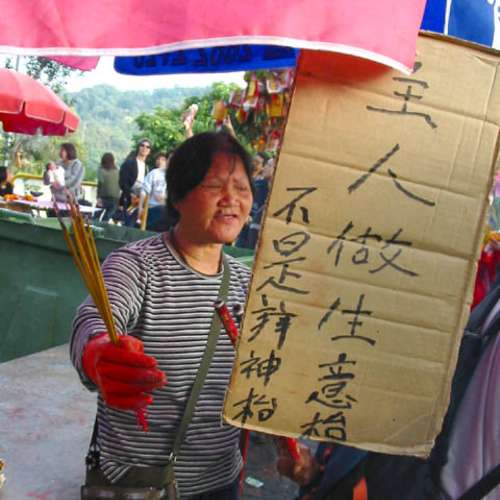 主人做生意枱
不是拜神枱